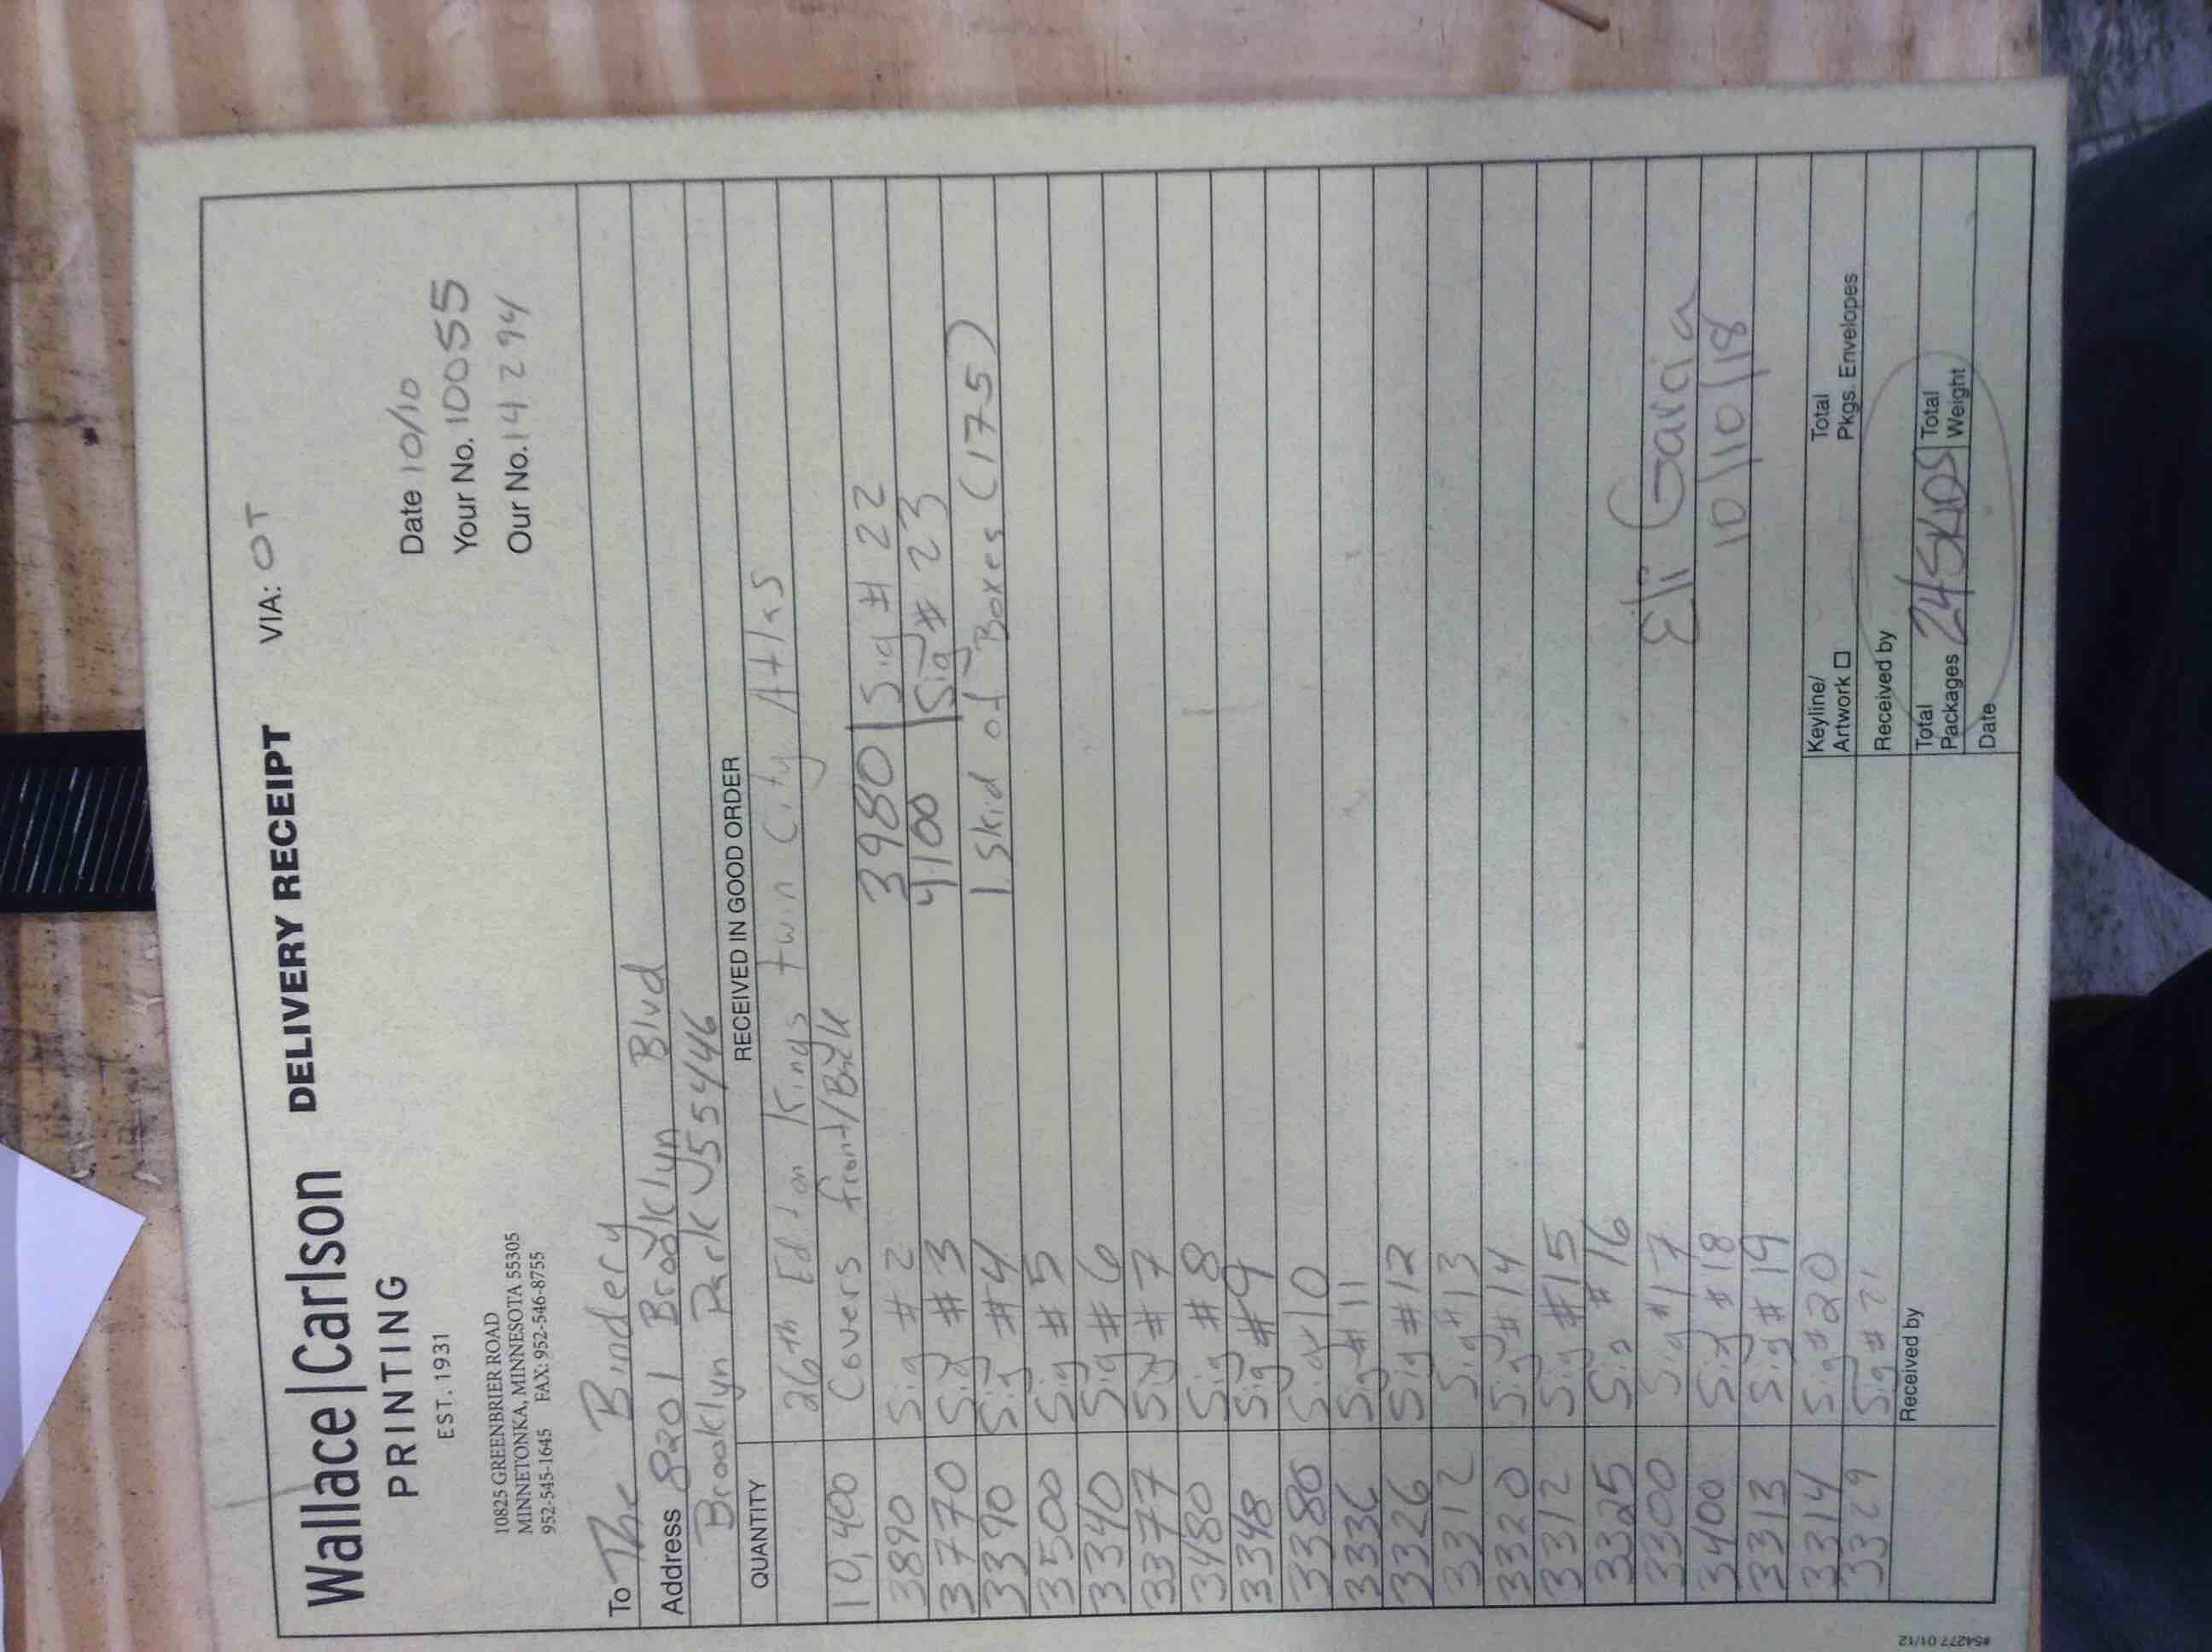 Wallace|Carlson DELIVERY RECEIPT VIA: OT
PRINTING
EST. 1931
Date 10/10
Your No. 10055
Our No. 142294
10825 GREENBRIER ROAD
MINNETONKA, MINNESOTA 55305
952-545-1645 FAX: 952-546-8755
To The Bindery
Address 8201 Brooklyn Blvd
Brooklyn Park 55446
QUANTITY RECEIVED IN GOOD ORDER
26th Edition Kings twin City Atlas
10,400 Covers front/Back
3890 Sig #2 3980 Sig #22
3770 Sig #3 4100 Sig #23
3390 Sig #4 1 Skid of Boxes (175)
3500 Sig #5
3340 Sig #6
3377 Sig #7
3480 Sig #8
3348 Sig #9
3380 Sig 10
3336 Sig #11
3326 Sig #12
3312 Sig #13
3320 Sig #14
3312 Sig #15
3325 Sig #16
3300 Sig #17 Eli Garcia
3400 Sig #18 10/10/18
3313 Sig #19
3314 Sig #20
3329 Sig #21
Keyline/
Artwork
Total
Pkgs. Envelopes
Received by
Received by
Total
Packages 24 SKIDS
Total
Weight
Date
#54277 01/12